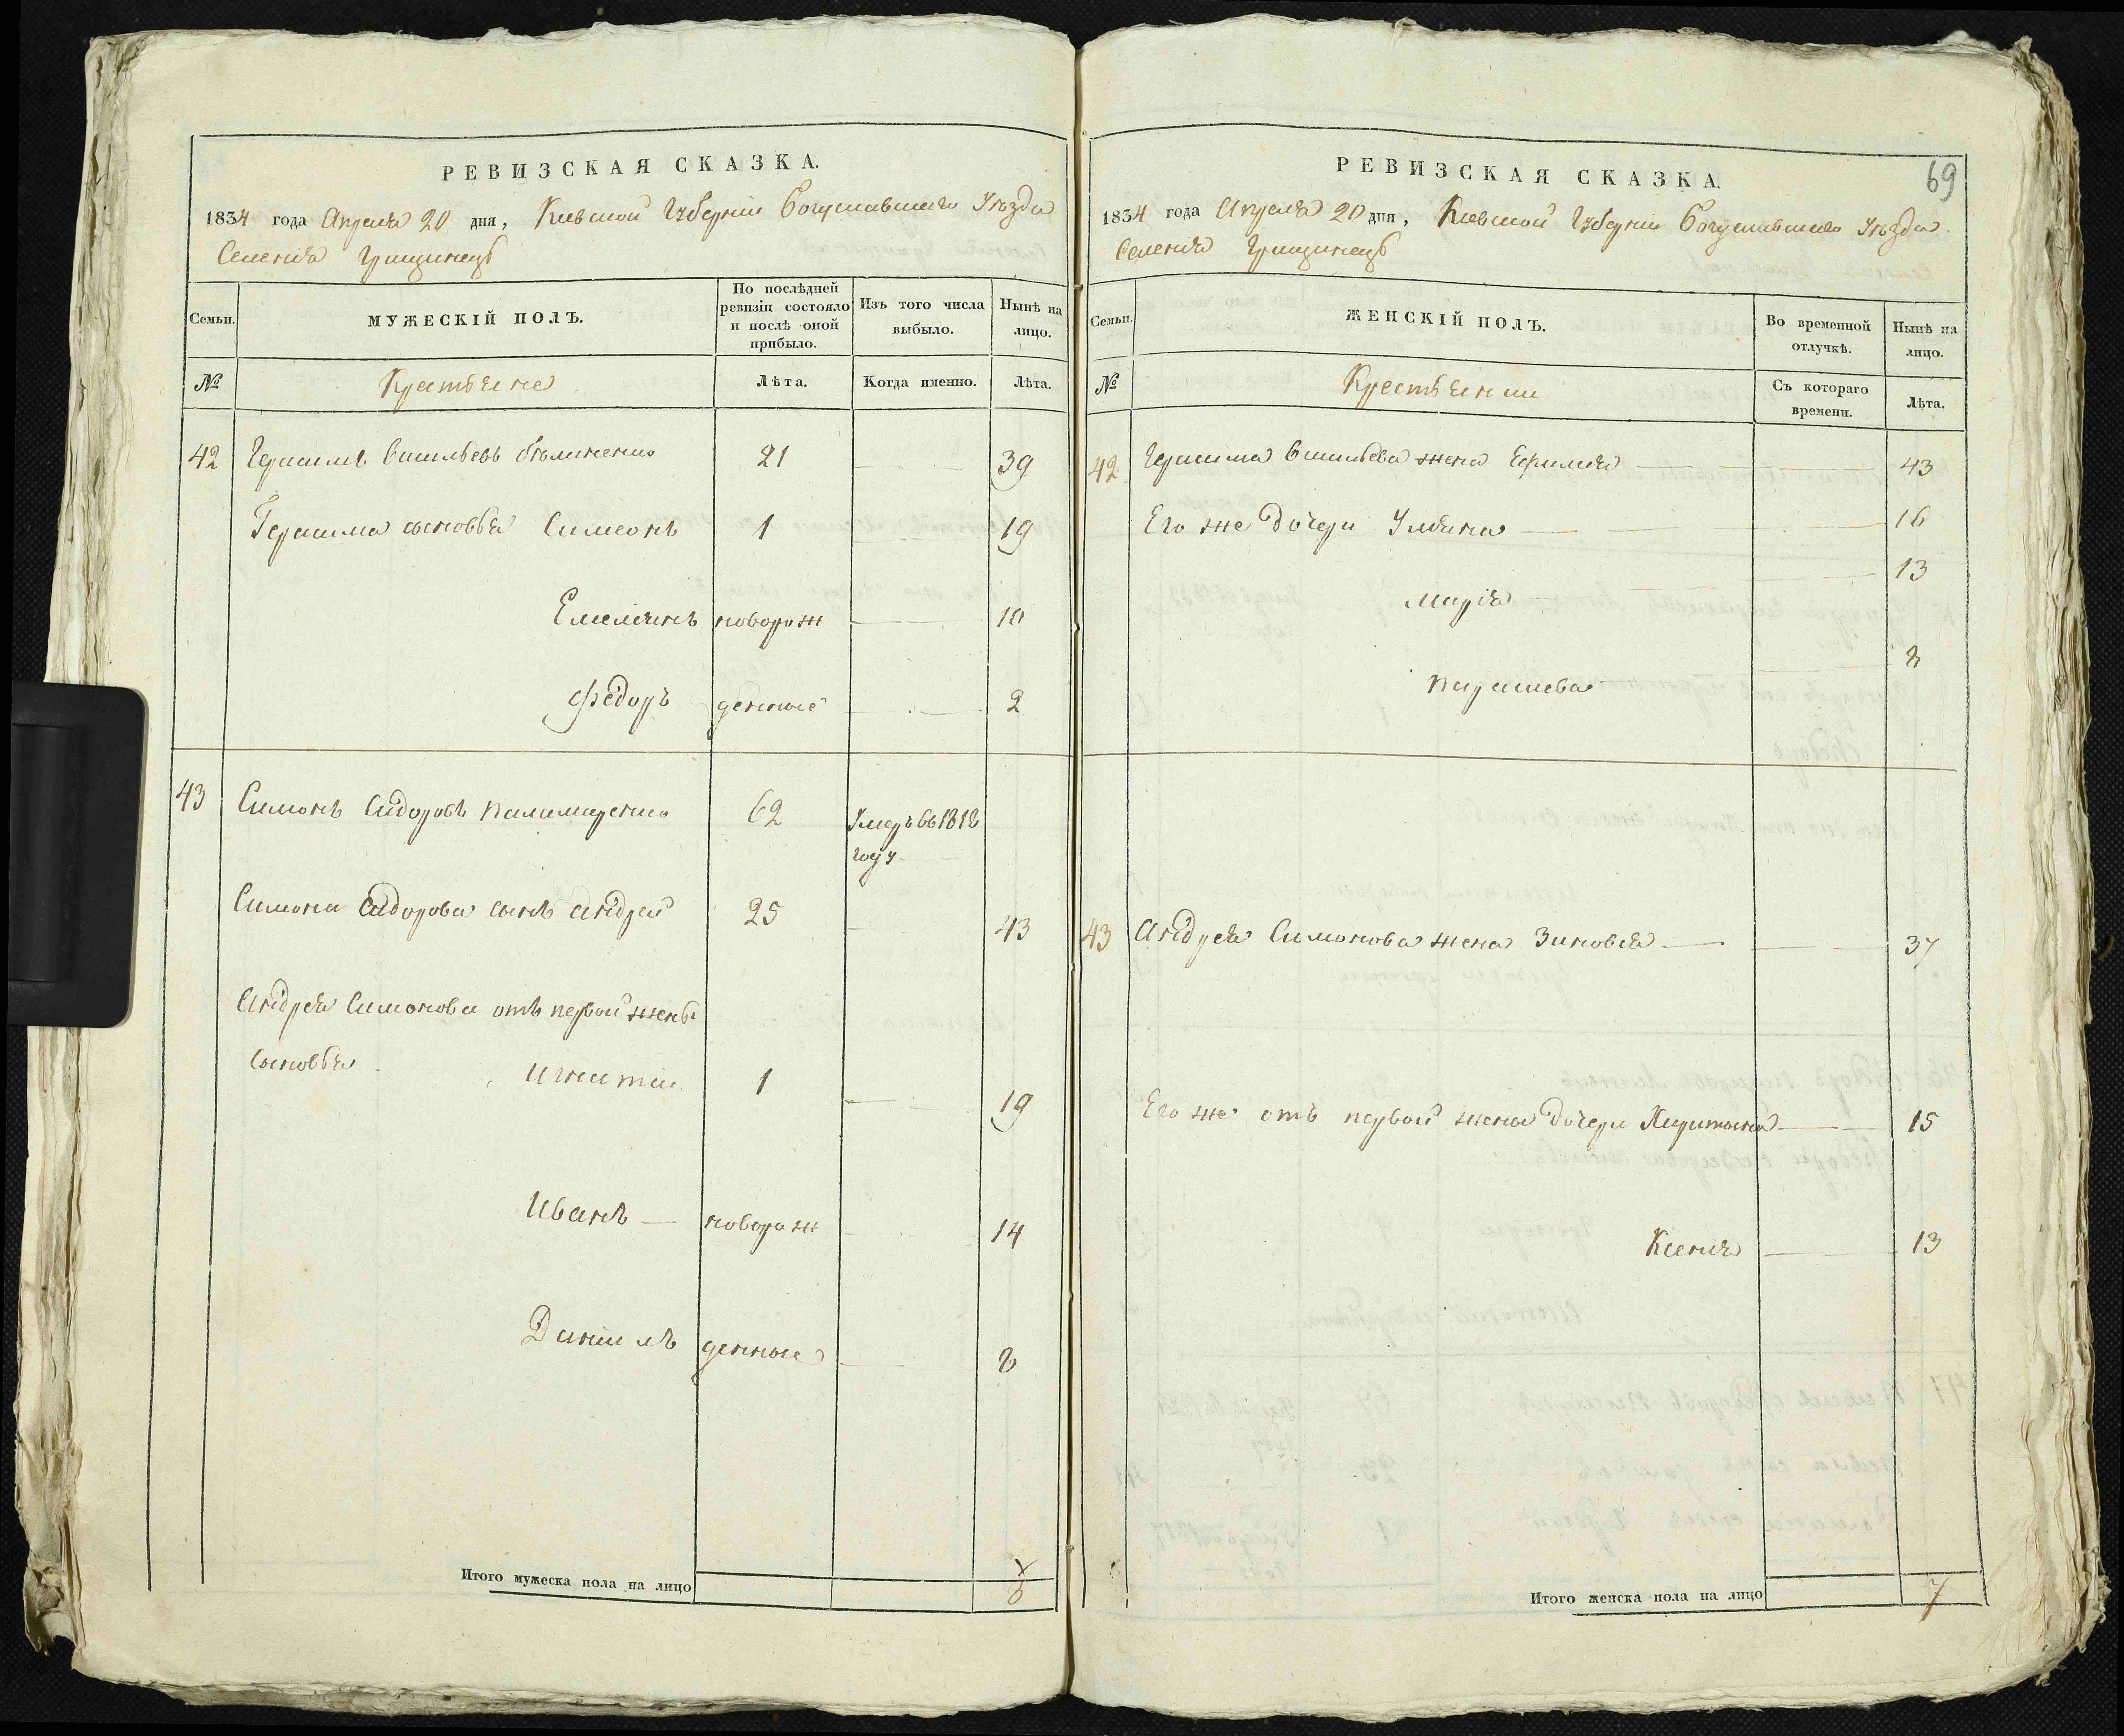 РЕВИЗСКАЯ СКАЗКА.
1834 года Апреля 20 дня, Киевской Губернии Богуславшаго Уезда
Селения Грищинецъ
Семьи. МУЖЕСКІЙ ПОЛЪ. По послѣдней ревизіи состояло и послѣ оной прибыло. Изъ того числа выбыло. Нынѣ на лицо.
№ Крестьяне Лѣта. Когда именно. Лѣта.
42 Герасимъ Васильевъ 21 39
Герасима сыновья Симеонъ 1 19
Емельянъ новорож 10
Федоръ денные 2
43 Симонъ Сидоровъ Паламаренко 62 Умеръ въ 1818
году
Симона Сидорова сынъ Андрей 25 43
Андрея Симонова отъ первой жены
сыновья Игнатій 1 19
Иванъ новорож 14
Даніилъ денные 8
Итого мужеска пола на лицо 8
69
РЕВИЗСКАЯ СКАЗКА.
1834 года Апреля 20 дня, Киевской Губернии Богуславшаго Уезда
Селения Грищинецъ
Семьи. ЖЕНСКІЙ ПОЛЪ. Во временной отлучкѣ. Нынѣ на лицо.
№ Крестьянки Съ котораго времени. Лѣта.
42 Герасима Васильева жена Ефимия 43
Его же дочери Ульяна 16
Марія 13
Параскева 8
43 Андрея Симонова жена Зиновия 37
Его же отъ первой жены дочери Харитына 15
Ксения 13
Итого женска пола на лицо 7